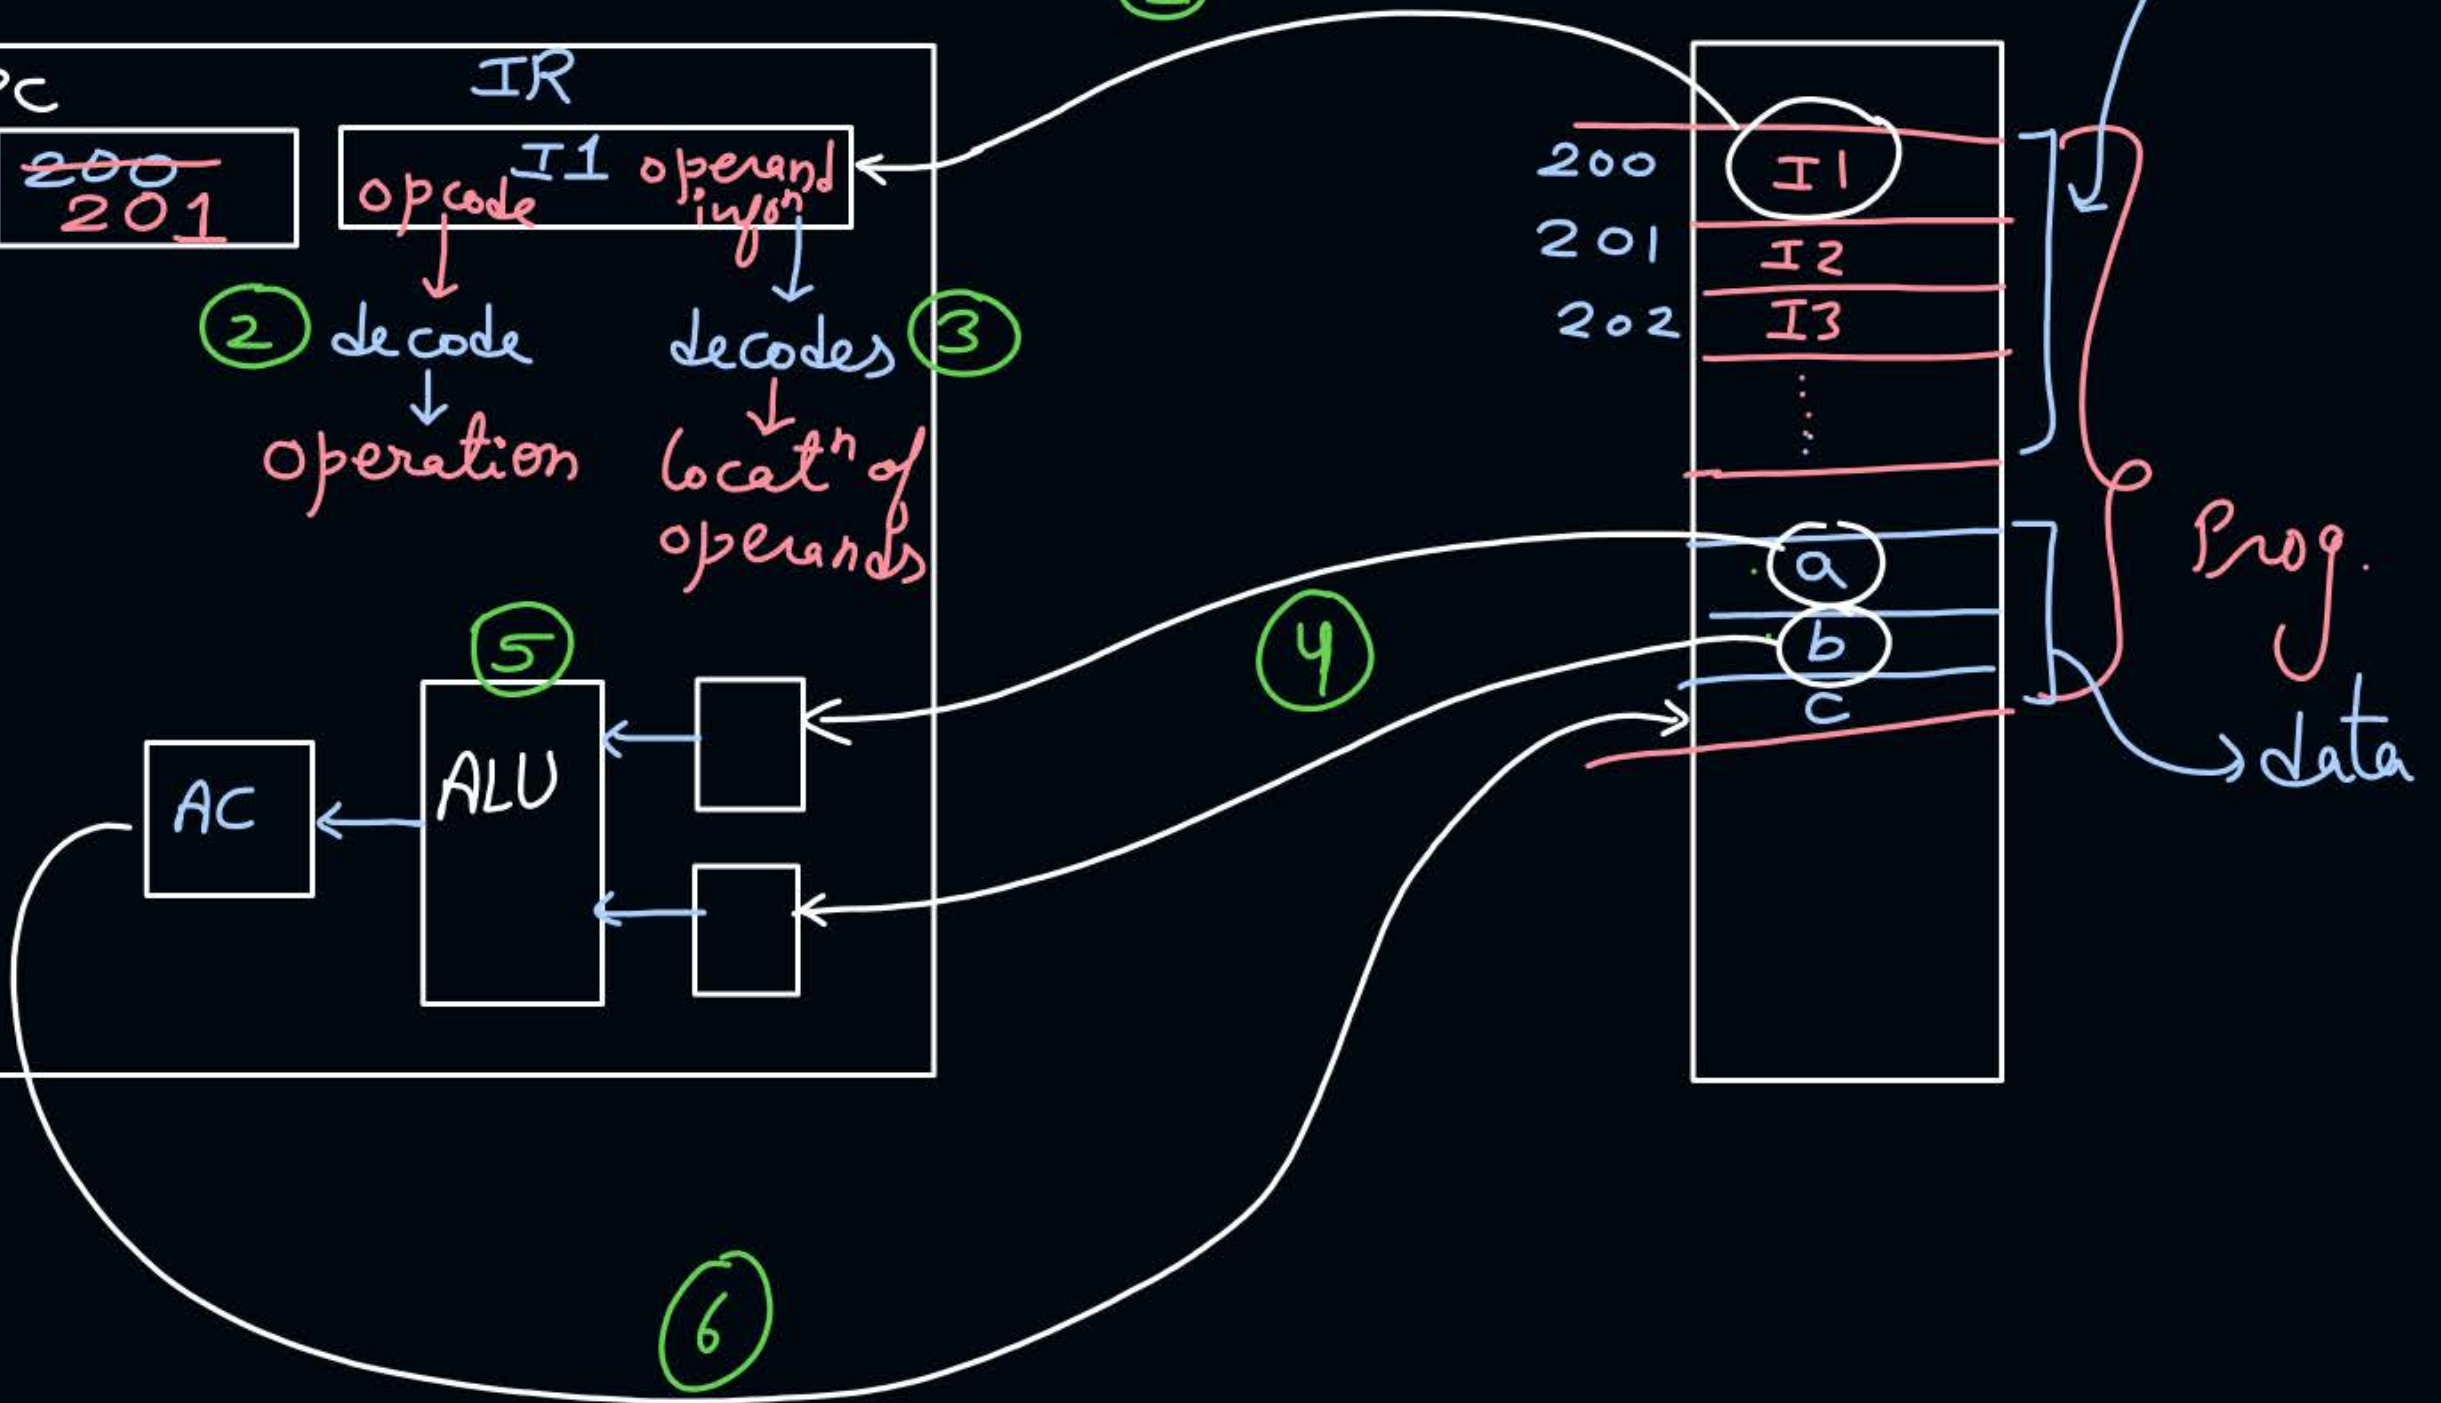 PC
IR
200
201
I1
opcode
operand
infoⁿ
2
decode
decodes
3
operation
locatⁿ of
operands
5
ALU
AC
4
6
200 I1
201 I2
202 I3
a
b
c
Prog.
data